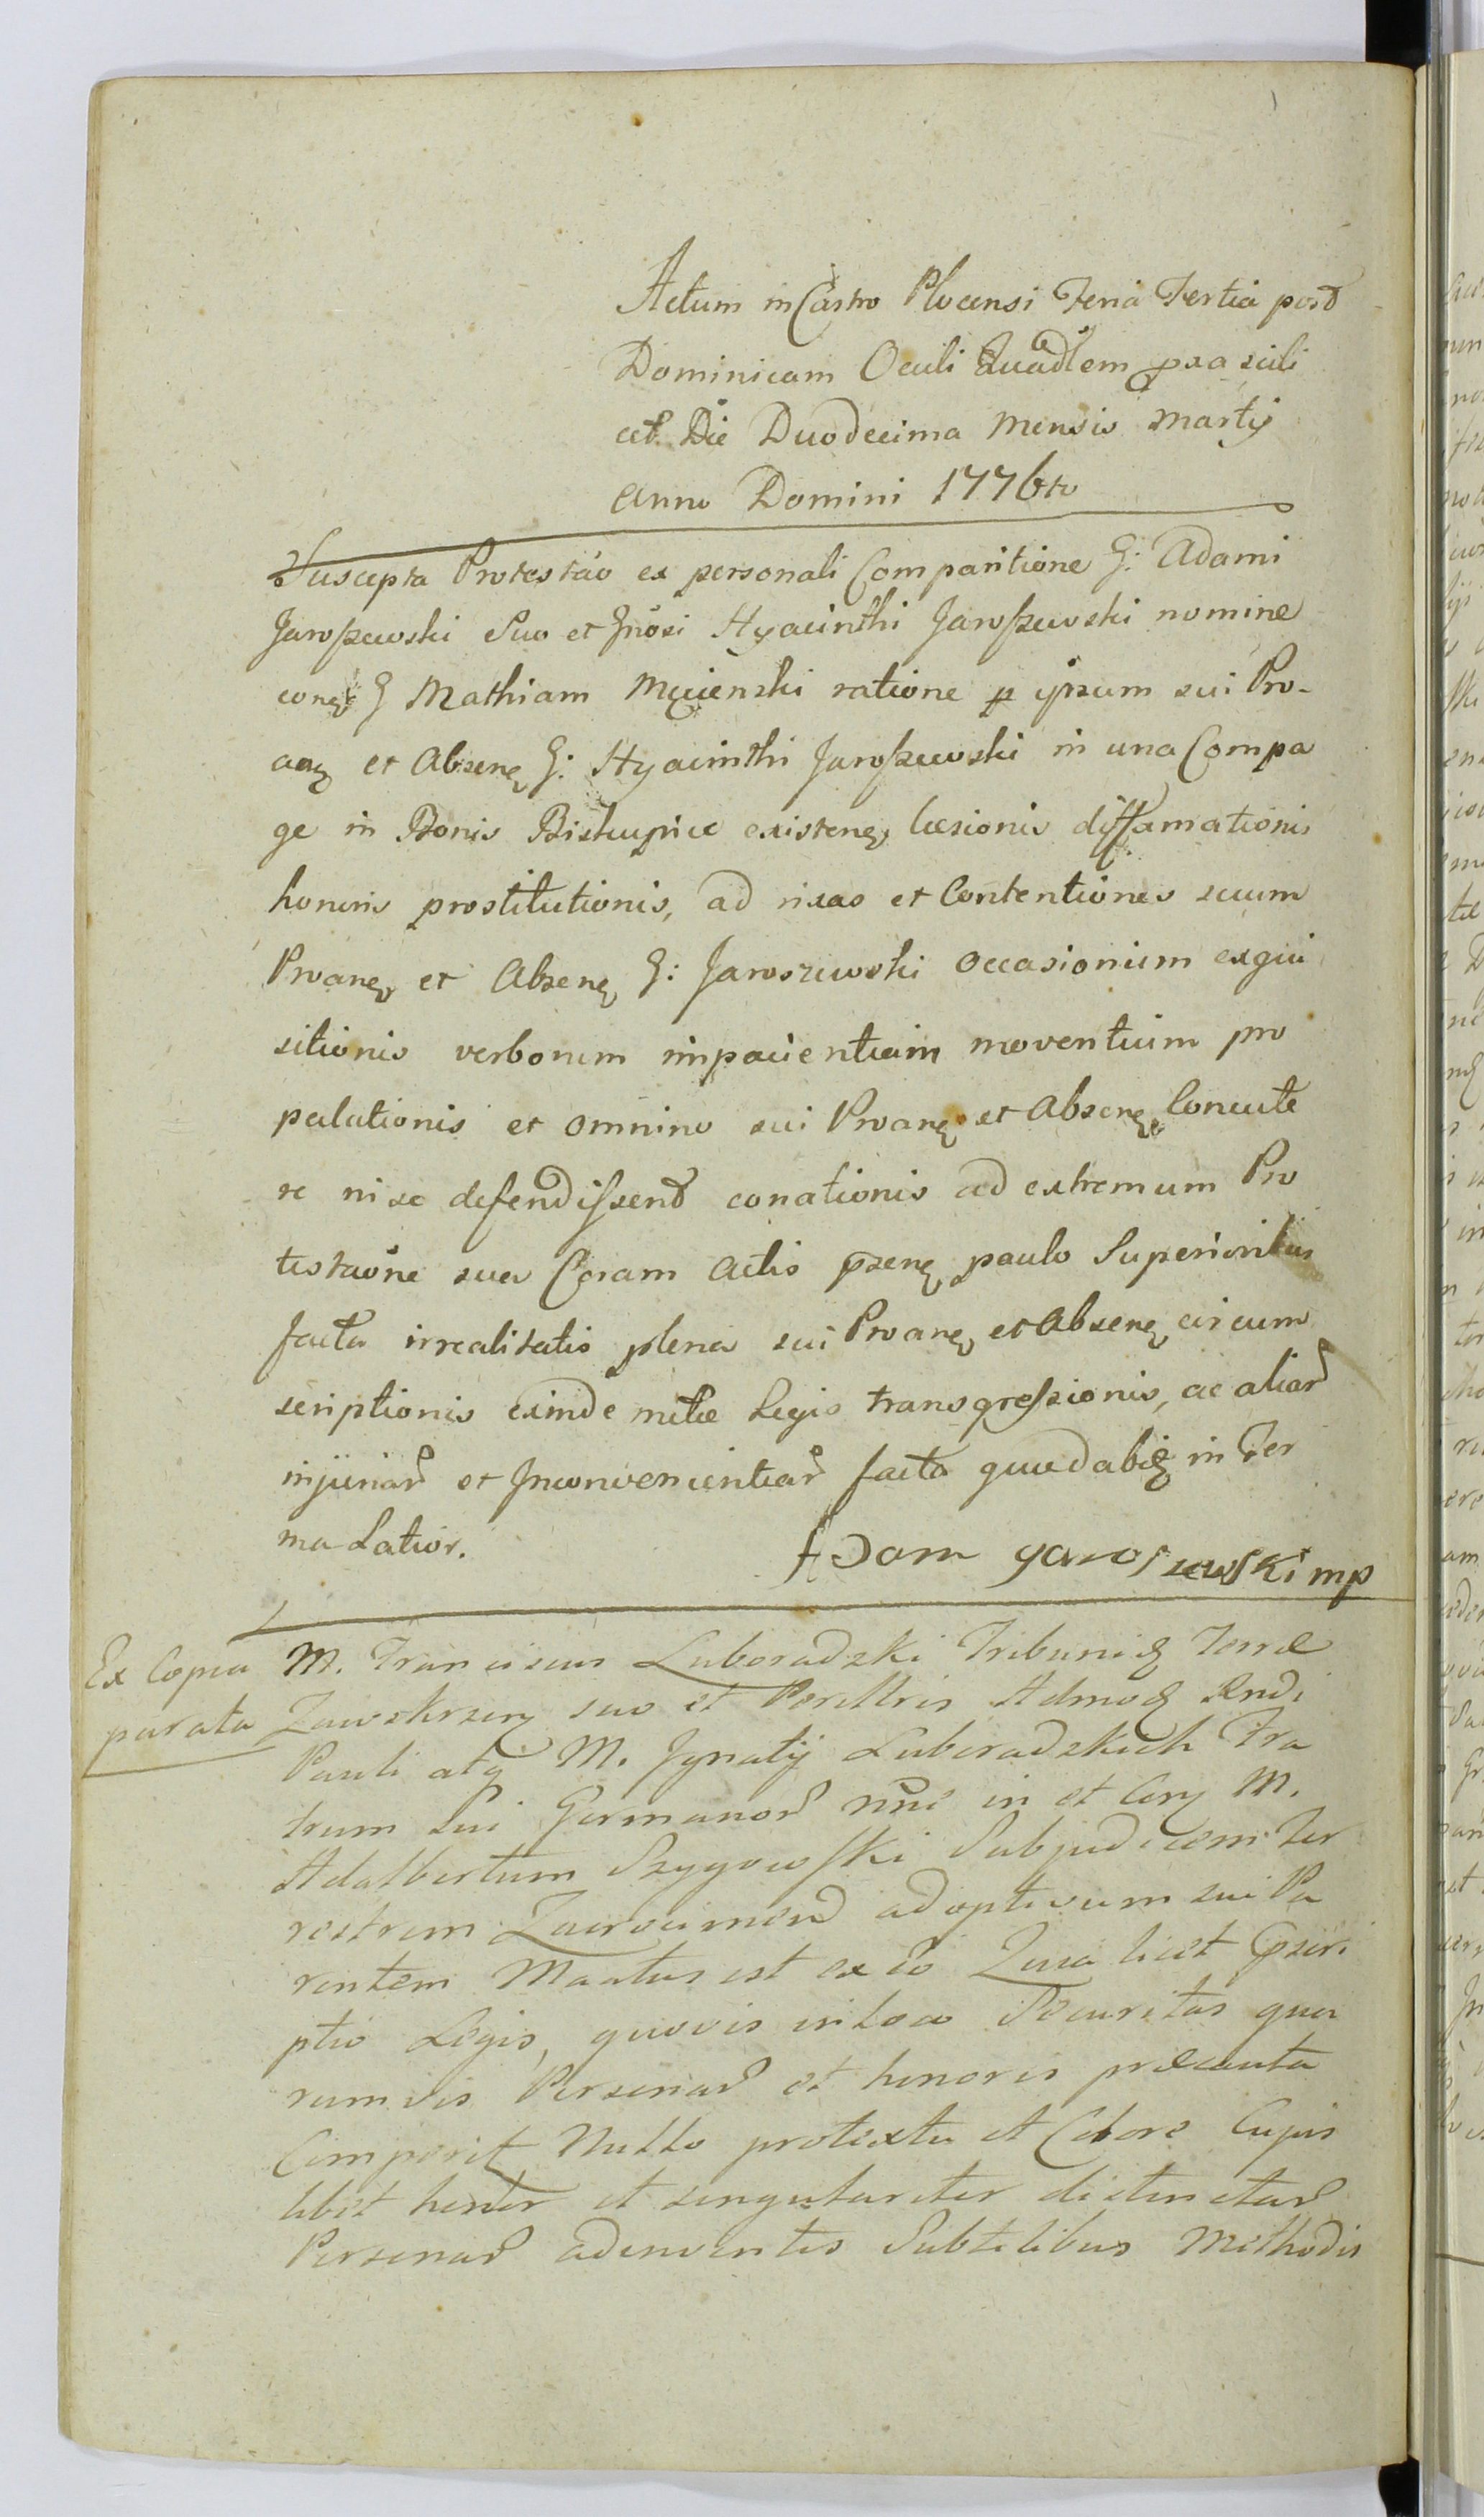 Actum in Castro Plocensi Feria Tertia post
Dominicam Oculi Quadlem pxa scili
cet Die Duodecima Mensis Martij
Anno Domini 1776to
Suscepta Protestao ex personali Comparitione G: Adami
Jaroszewski Suo et Gnosi Hyacinthi Jaroszewski nomine
G Mathiam ratione p ipsum sui Pro-
et Absen G: Hyacinthi Jaroszewski in una Compa
ge in Bonis Biskupice existen læsionis diffamationis
honoris prostitutionis, ad rixas et Contentiones secum
Proan et Absen G: Jaroszewski Occasionum exqui
sitionis verborum impatientiam moventium pro
palationis et omnino sui Proan et Absen Concute
re ni se defendissent conationis ad extremum Pro
testaone sua Coram Actis pæsen paulo Superioribus
facta irrealitatis plena sui Proan et Absen circum
scriptionis exinde Legis transgressionis, ac aliar
injuriar et Inconvenientiar facta in Ter
ma Latior.
Adam Jaroszewski mp
Ex Copia
parata
M. Franciscus Luboradzki Tribuni Terræ
Zawskrzen suo et Perillris Admod Rndi
Pauli atq M. Ignatij Luboradzkich Fra
trum Sui Germanor nne in et Con M.
Adalbertum Szygowski Subjudicem Ter
restrem Zacrocimen adoptivum sui Pa
rentem Mantus est ex eo Quia licet
ptio Legis, quovis in loco Securitas qua
rumvis Personar et honoris præcauta
Comperit Nullo protextu et Colore Cujus
libet et singulariter distinctar
Personar adinventis Subtilibus Methodis